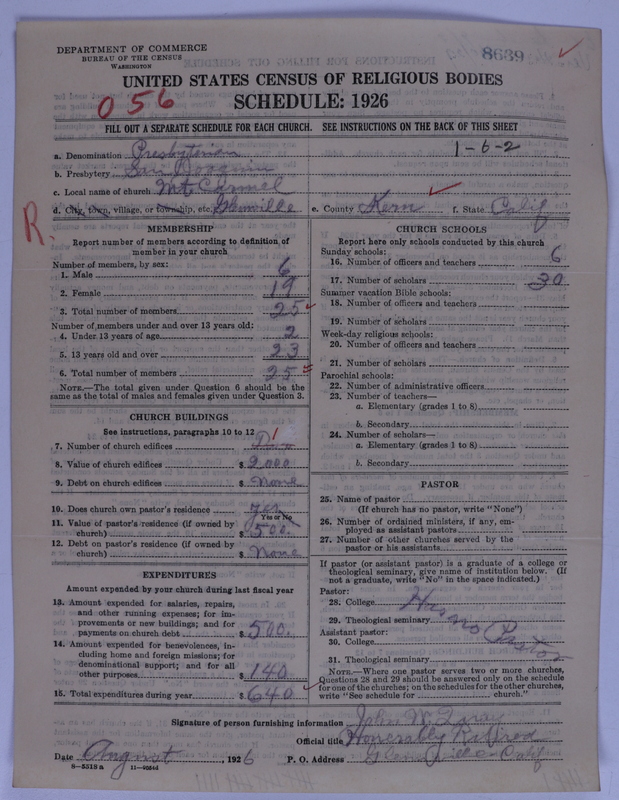 DEPARTMENT OF COMMERCE
BUREAU OF THE CENSUS
WASHINGTON
8639
UNITED STATES CENSUS OF RELIGIOUS BODIES
SCHEDULE: 1926
056
FILL OUT A SEPARATE SCHEDULE FOR EACH CHURCH. SEE INSTRUCTIONS ON THE BACK OF THIS SHEET
1-6-2
a. Denomination Presbyterian
b. Presbytery San Joaquin
c. Local name of church Mt Carmel
d. City, town, village, or township, etc. Glennville e. County Kern f. State Calif
R
MEMBERSHIP
Report number of members according to definition of
member in your church
Number of members, by sex:
1. Male 6
2. Female 19
3. Total number of members 25
Number of members under and over 13 years old:
4. Under 13 years of age 2
5. 13 years old and over 23
6. Total number of members 25
NOTE.—The total given under Question 6 should be the
same as the total of males and females given under Question 3.
CHURCH BUILDINGS
See instructions, paragraphs 10 to 12
7. Number of church edifices 1
8. Value of church edifices $ 2000
9. Debt on church edifices $ None
10. Does church own pastor's residence yes
Yes or No
11. Value of pastor's residence (if owned by
church) $ 500.
12. Debt on pastor's residence (if owned by
church) $ None
EXPENDITURES
Amount expended by your church during last fiscal year
13. Amount expended for salaries, repairs,
and other running expenses; for im-
provements or new buildings; and for
payments on church debt $ 500.
14. Amount expended for benevolences, in-
cluding home and foreign missions; for
denominational support; and for all
other purposes $ 140
15. Total expenditures during year $ 640
CHURCH SCHOOLS
Report here only schools conducted by this church
Sunday schools:
16. Number of officers and teachers 6
17. Number of scholars 30
Summer vacation Bible schools:
18. Number of officers and teachers
19. Number of scholars
Week-day religious schools:
20. Number of officers and teachers
21. Number of scholars
Parochial schools:
22. Number of administrative officers
23. Number of teachers—
a. Elementary (grades 1 to 8)
b. Secondary
24. Number of scholars—
a. Elementary (grades 1 to 8)
b. Secondary
PASTOR
25. Name of pastor
(If church has no pastor, write "None")
26. Number of ordained ministers, if any, em-
ployed as assistant pastors
27. Number of other churches served by the
pastor or his assistants
If pastor (or assistant pastor) is a graduate of a college or
theological seminary, give name of institution below. (If
not a graduate, write "No" in the space indicated.)
Pastor:
28. College
Has no Pastor
29. Theological seminary
Assistant pastor:
30. College
31. Theological seminary
NOTE.—Where one pastor serves two or more churches,
Questions 28 and 29 should be answered only on the schedule
for one of the churches; on the schedules for the other churches,
write "See schedule for church."
Signature of person furnishing information John
Official title Honorably Retired
Date August, 1926 P. O. Address Glennville Calif
8—5518a 11—4054d